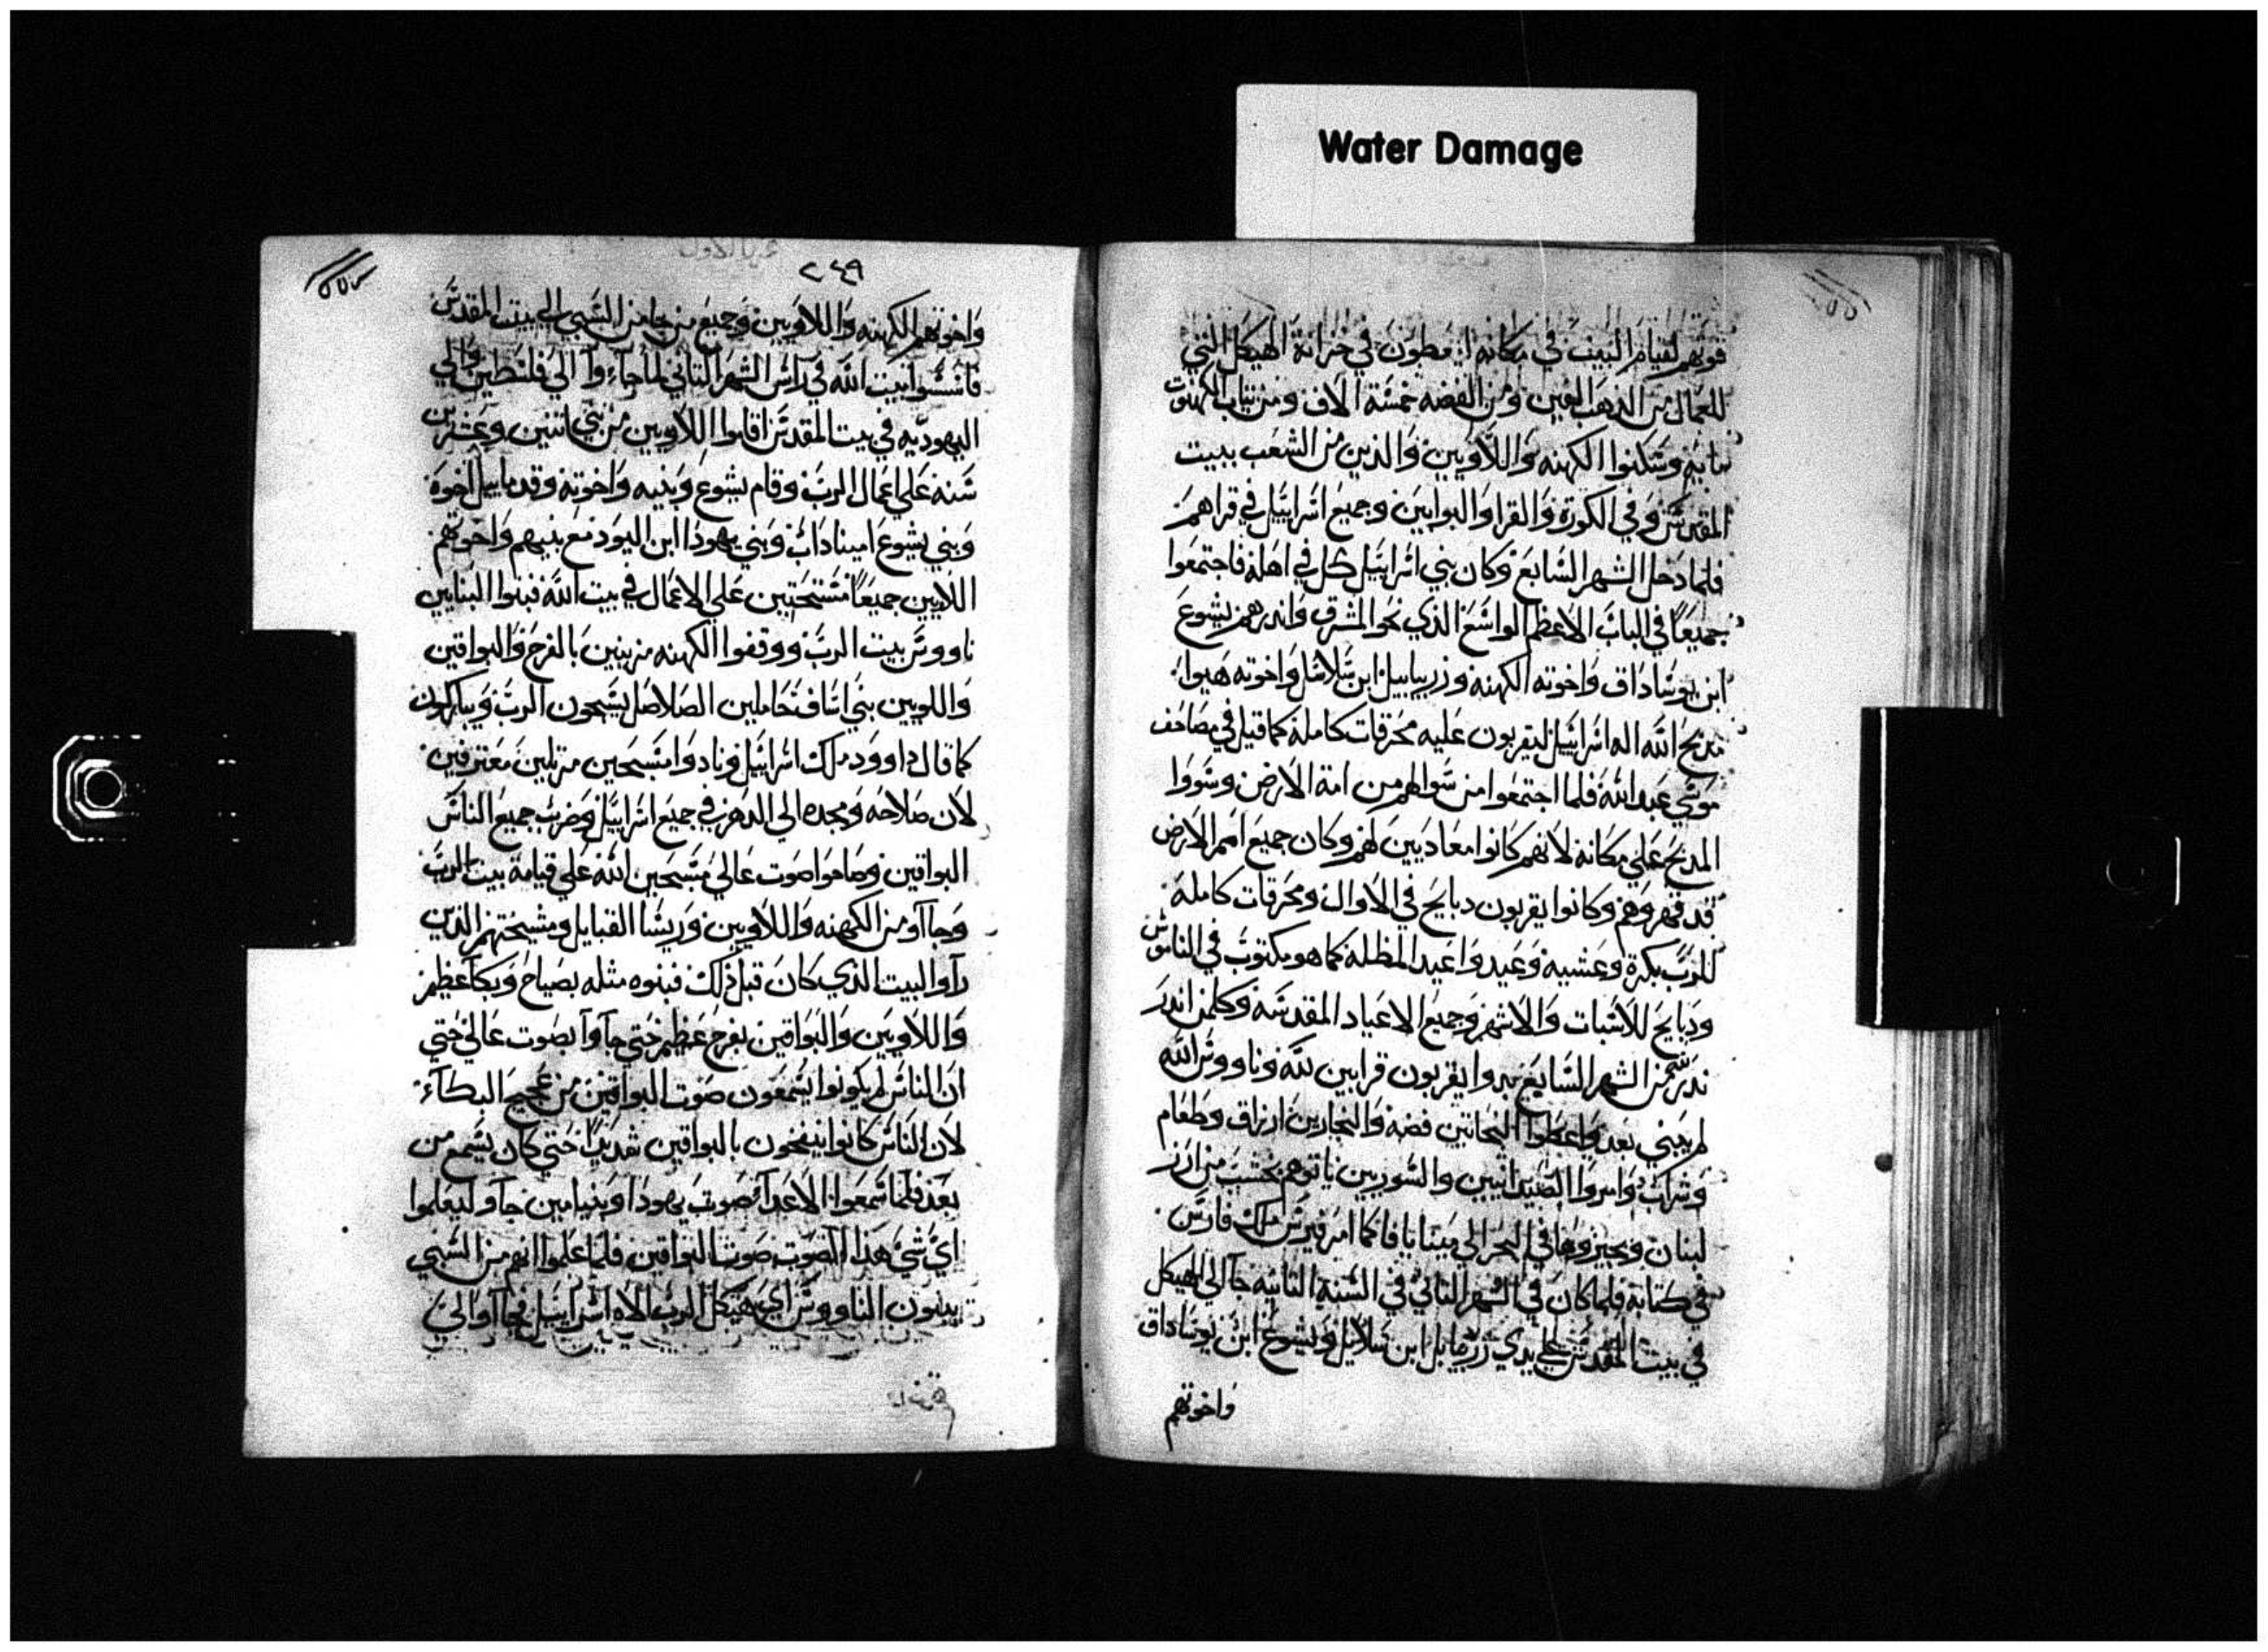 Water Damage
قوتهم لقيام البيت في مكانه ان يعطون في خزانة الهيكل التي
للعمال من الذهب الفين ومن الفضه خمسة الاف ومن ثياب الكهنوت
وسكنوا الكهنه واللاويين والذين من الشعب ببيت
المقدس وفي الكورة والقرا والبوابين وجميع اسراييل في قراهم
فلما دخل الشهر السابع وكان بني اسراييل كل في اهله فاجتمعوا
جميعا في الباب الاعظم الواسع الذي نحو المشرق وانذرهم يشوع
ابن يوساداق واخوته الكهنه وزربيابيل ابن سلاتيل واخوته هيوا
مدبح الله اله اسراييل ليقربون عليه محرقات كاملة كما قيل في مصاحف
موسي عبد الله فلما اجتمعوا من سواهم من امة الارض وسووا
المدبح علي مكانه لانهم كانوا معاديين لهم وكان جميع امم الارض
قد قهروهم وكانوا يقربون دبايح في الاوان ومحرقات كاملة
للرب بكرة وعشيه وعيدوا عيد المظلة كما هو مكتوب في الناموس
ودبايح للاسبات والاشهر وجميع الاعياد المقدسة وكلمن اندر
ندر من الشهر السابع بدوا يقربون قرابين لله وناووس الله
لم يبني بعد واعطوا النحاتين فضه والنجارين ارزاق وطعام
وشراب وامروا الصيدانيين والسوريين ياتوهم بخشب من ارز
لبنان ويجيزوها في البحر الي مينا يافا كما امر قيرس ملك فارس
في كتابه فلما كان في الشهر الثاني في السنة الثانيه جا الي الهيكل
في بيت المقدس علي يدي زربابل ابن سلاتيل ويشوع ابن يوساداق
واخوتهم
٢٤٩
واخوتهم الكهنه واللاويين وجميع من جا من السبي الي بيت المقدس
فاسسوا بيت الله في راس الشهر الثاني لما جاءوا الي فلسطين والي
اليهوديه في بيت المقدس اقاموا اللاويين من بني اثنين وعشرين
سنه علي اعمال الرب وقام يشوع وبنيه واخوته وقدماييل اخوة
وبني يشوع اميناداب وبني يهودا ابن اليود مع بنيهم واخوتهم
اللايين جميعا مستحثين علي الاعمال في بيت الله فبنوا البنايين
ناووس بيت الرب ووقفوا الكهنه مزينين بالفرح والبواقين
واللويين بني اساف حاملين الصلاصل يسبحون الرب ويباركون
كما قال داوود ملك اسراييل ونادوا مسبحين مرتلين معترفين
لان صلاحه ومجده الي الدهر في جميع اسراييل وضرب جميع الناس
البواقين وصاحوا صوت عالي مسبحين لله علي قيامة بيت الرب
وجاآو من الكهنه واللاويين وريسا القبايل ومشيختهم الذين
رآوا البيت الذي كان قبل ذلك فبنوه مثله بصياح وبكا عظيم
واللاويين والبواقين بفرح عظيم حتي جاآوا بصوت عالي حتي
ان الناس لم يكونوا يسمعون صوت البواقين من عجيج البكاء
لان الناس كانوا ينفخون بالبواقين شديدا حتي كان يسمع من
بعد فلما سمعوا الاعداء صوت يهودا وبنيامين جاو ليعلموا
اي شي هذا الصوت صوت البواقين فلما علموا انهم من السبي
يبنون الناووس اي هيكل الرب الاه اسراييل فجاآوا الي